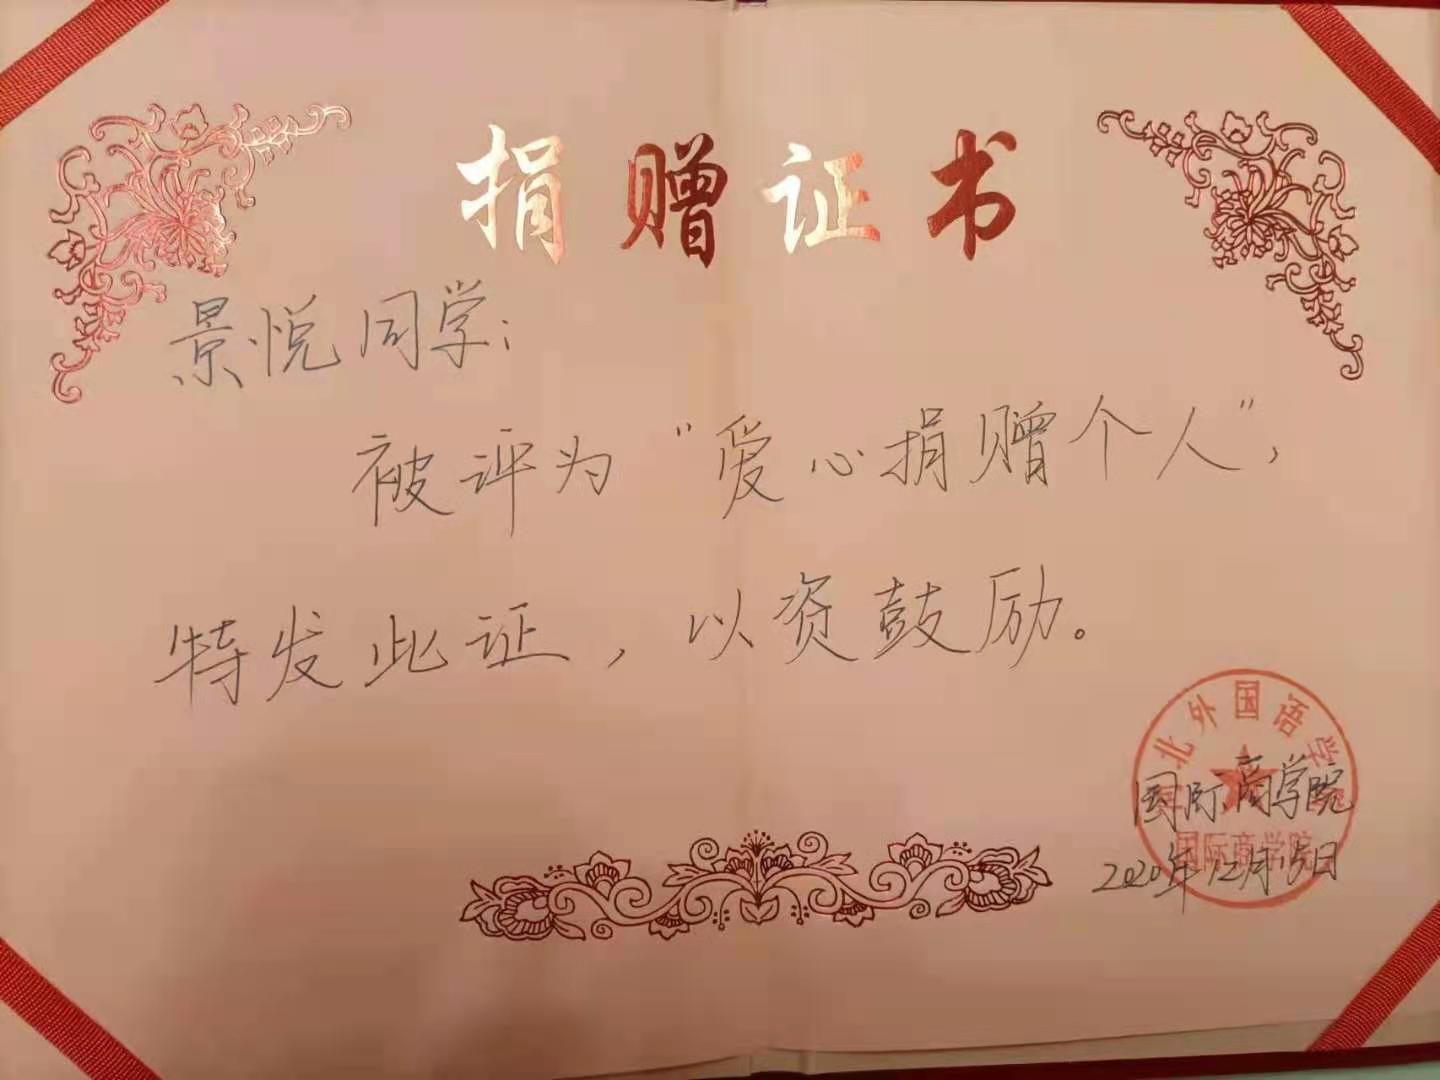 捐赠证书
景悦同学：
被评为“爱心捐赠个人”，
特发此证，以资鼓励。
北外国语学
国际商学院
国际商学院
2020年12月15日